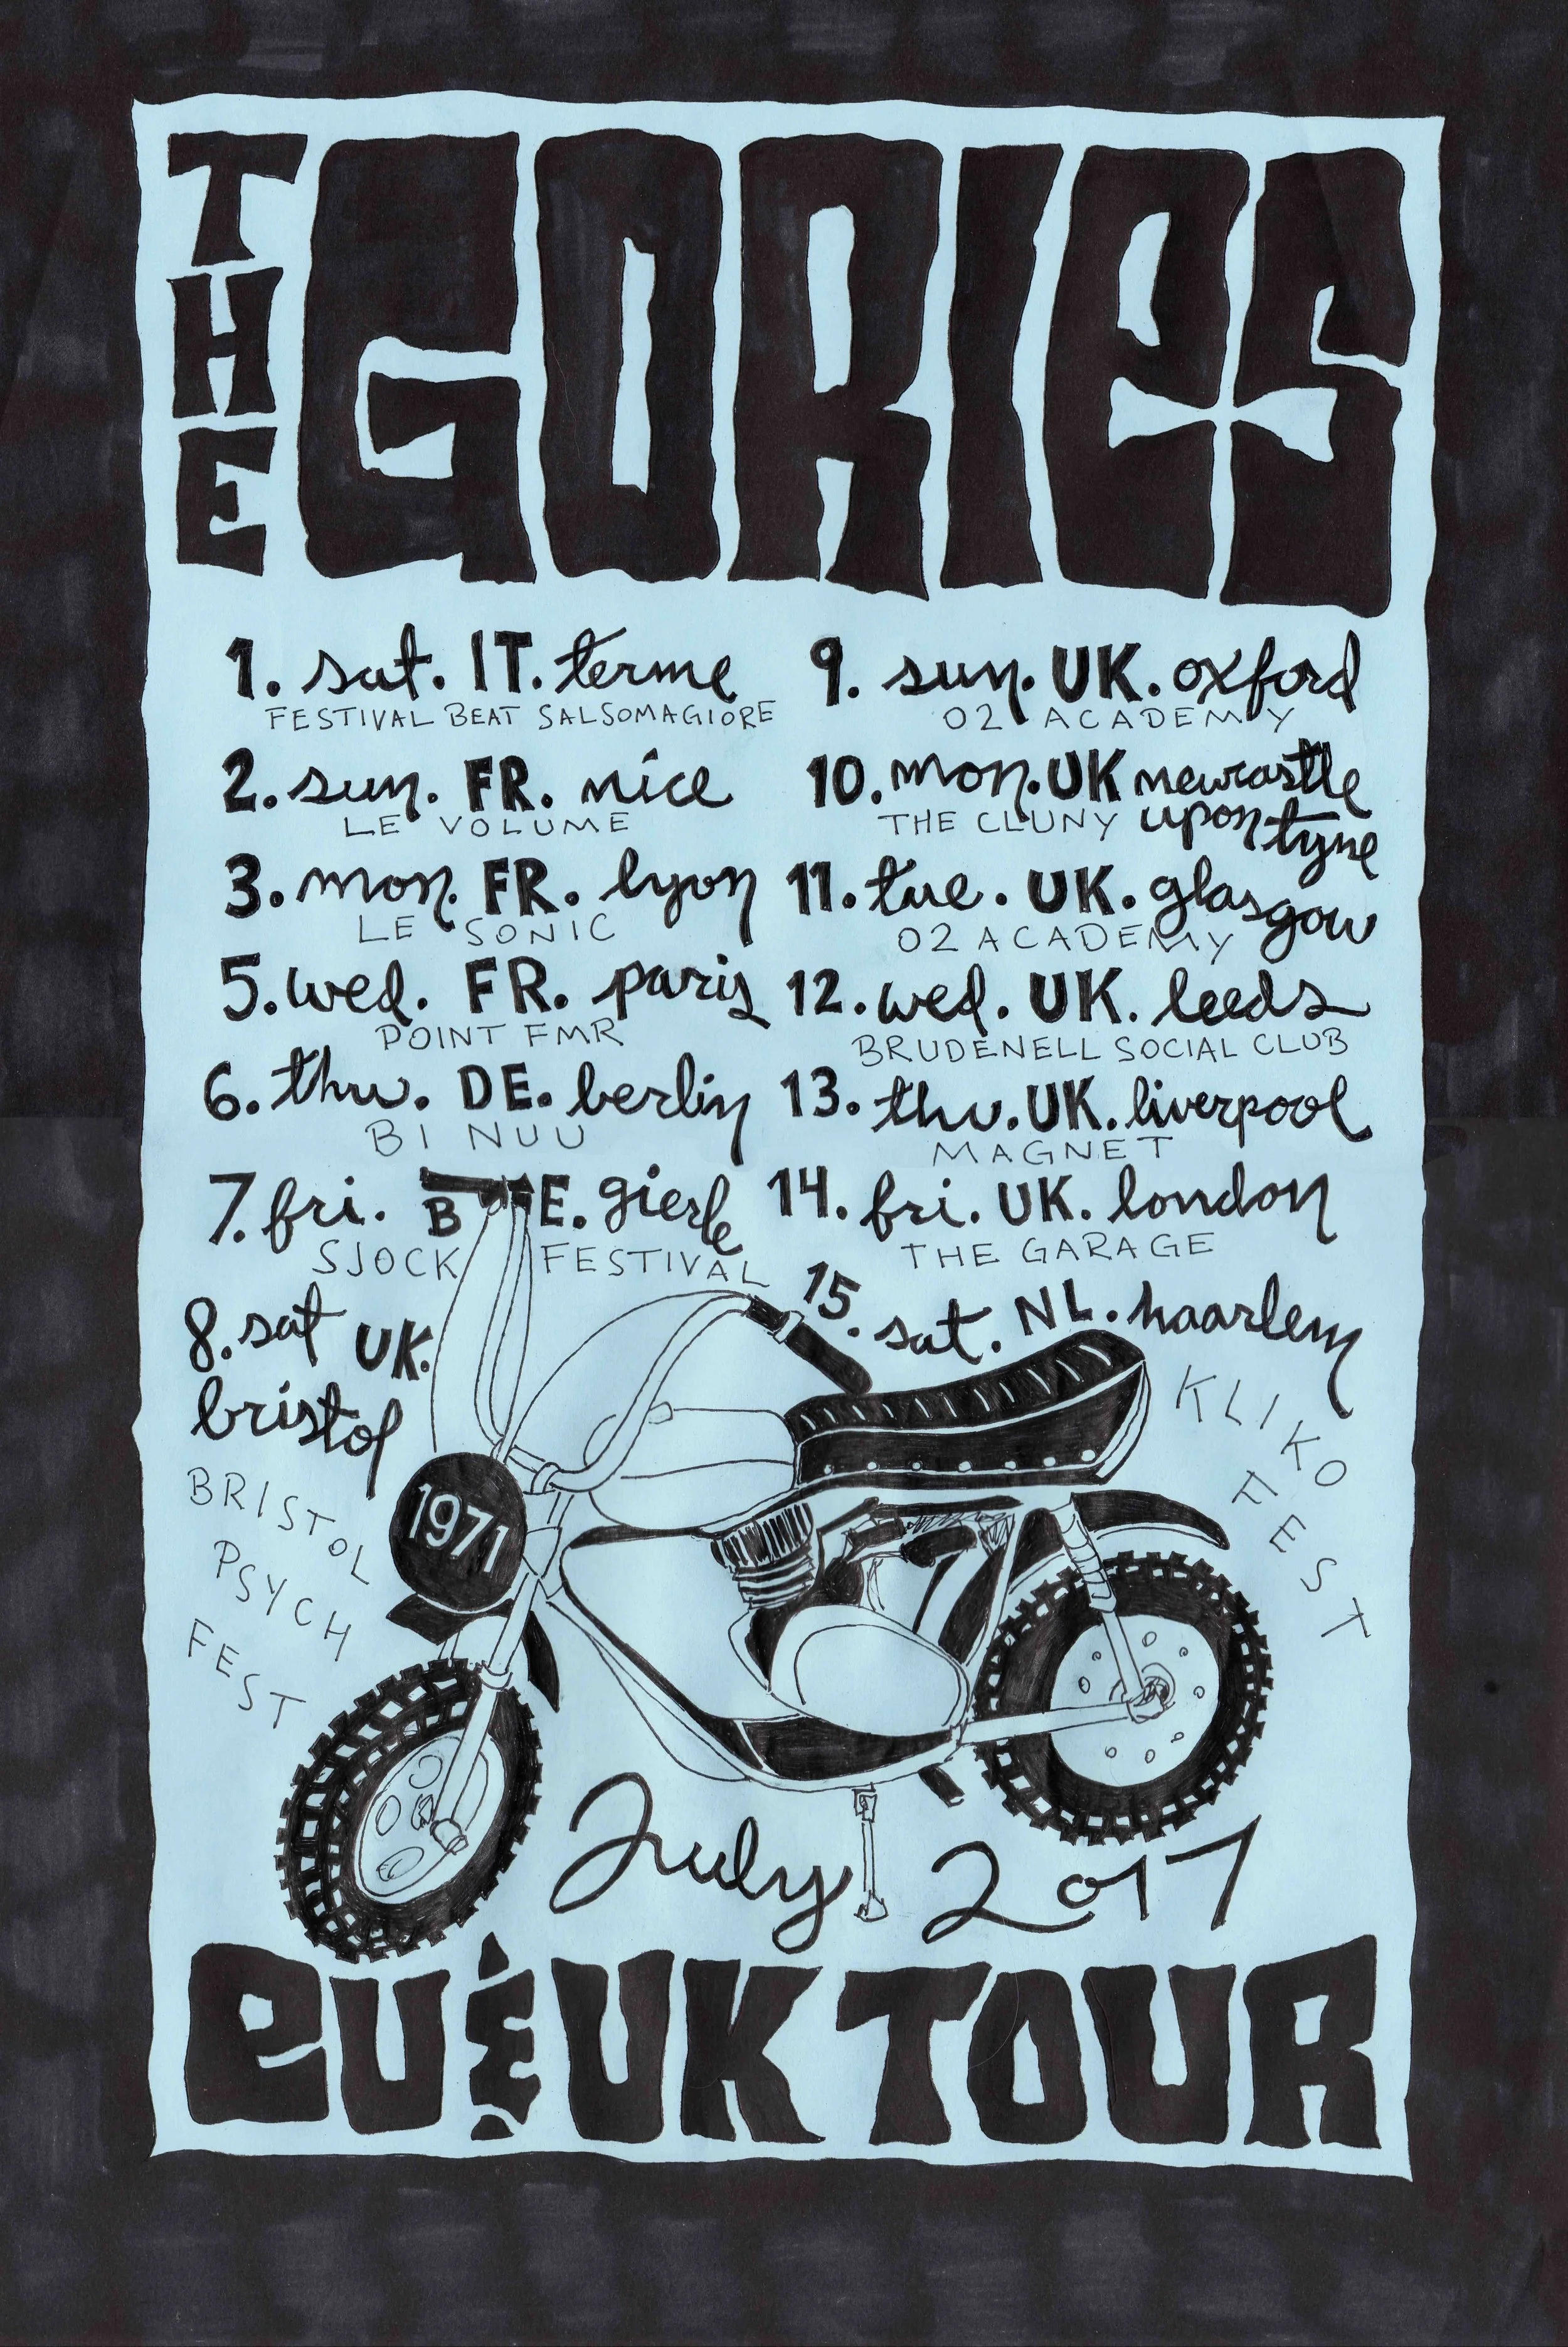 THE GORIES
1. sat. IT. terme
FESTIVAL BEAT SALSOMAGIORE
2. sun. FR. nice
LE VOLUME
3. mon. FR. lyon
LE SONIC
5. wed. FR. paris
POINT FMR
6. thu. DE. berlin
BI NUU
7. fri. BE. gierle
SJOCK FESTIVAL
8. sat UK.
bristol
BRISTOL
PSYCH
FEST
9. sun. UK. oxford
O2 ACADEMY
10. mon. UK newcastle
upon tyne
THE CLUNY
11. tue. UK. glasgow
O2 ACADEMY
12. wed. UK. leeds
BRUDENELL SOCIAL CLUB
13. thu. UK. liverpool
MAGNET
14. fri. UK. london
THE GARAGE
15. sat. NL. haarlem
KLIKO
FEST
1971
July 2017
eU & UK TOUR